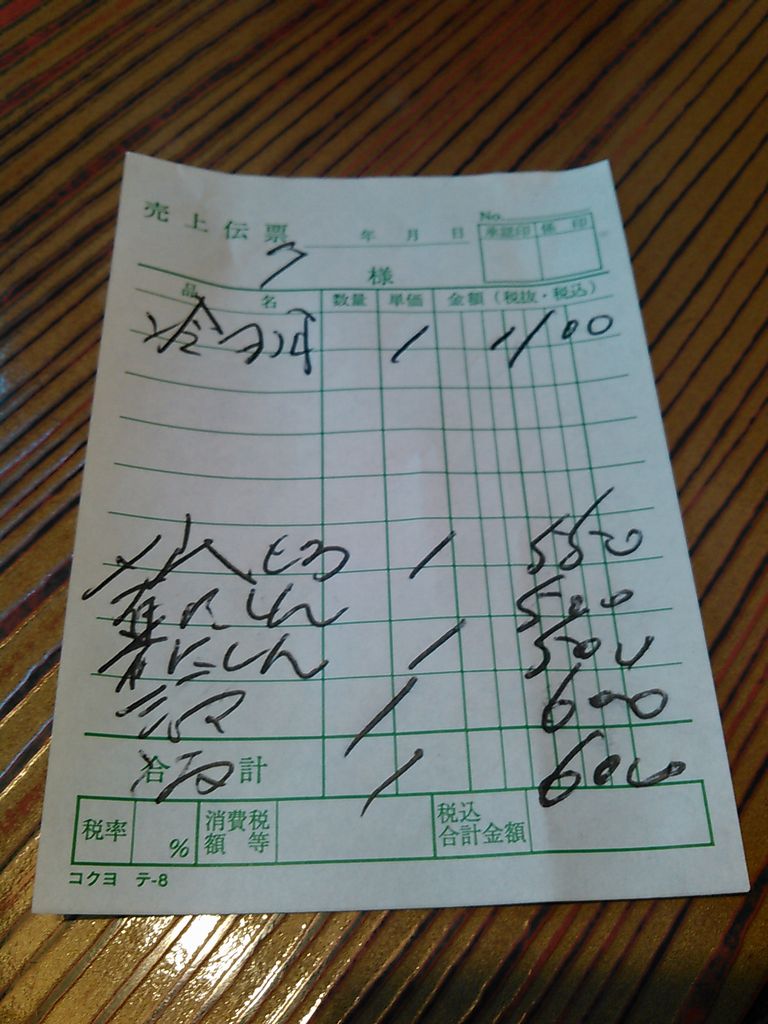 売上伝票 年 月 日 No.
承認印 係印
7 様
品 名 数量 単価 金額(税抜・税込)
1 1100
1 550
にしん 500
にしん 1 500
1 600
合 計 1 600
税率 % 消費税額等 税込合計金額
コクヨ テ-8